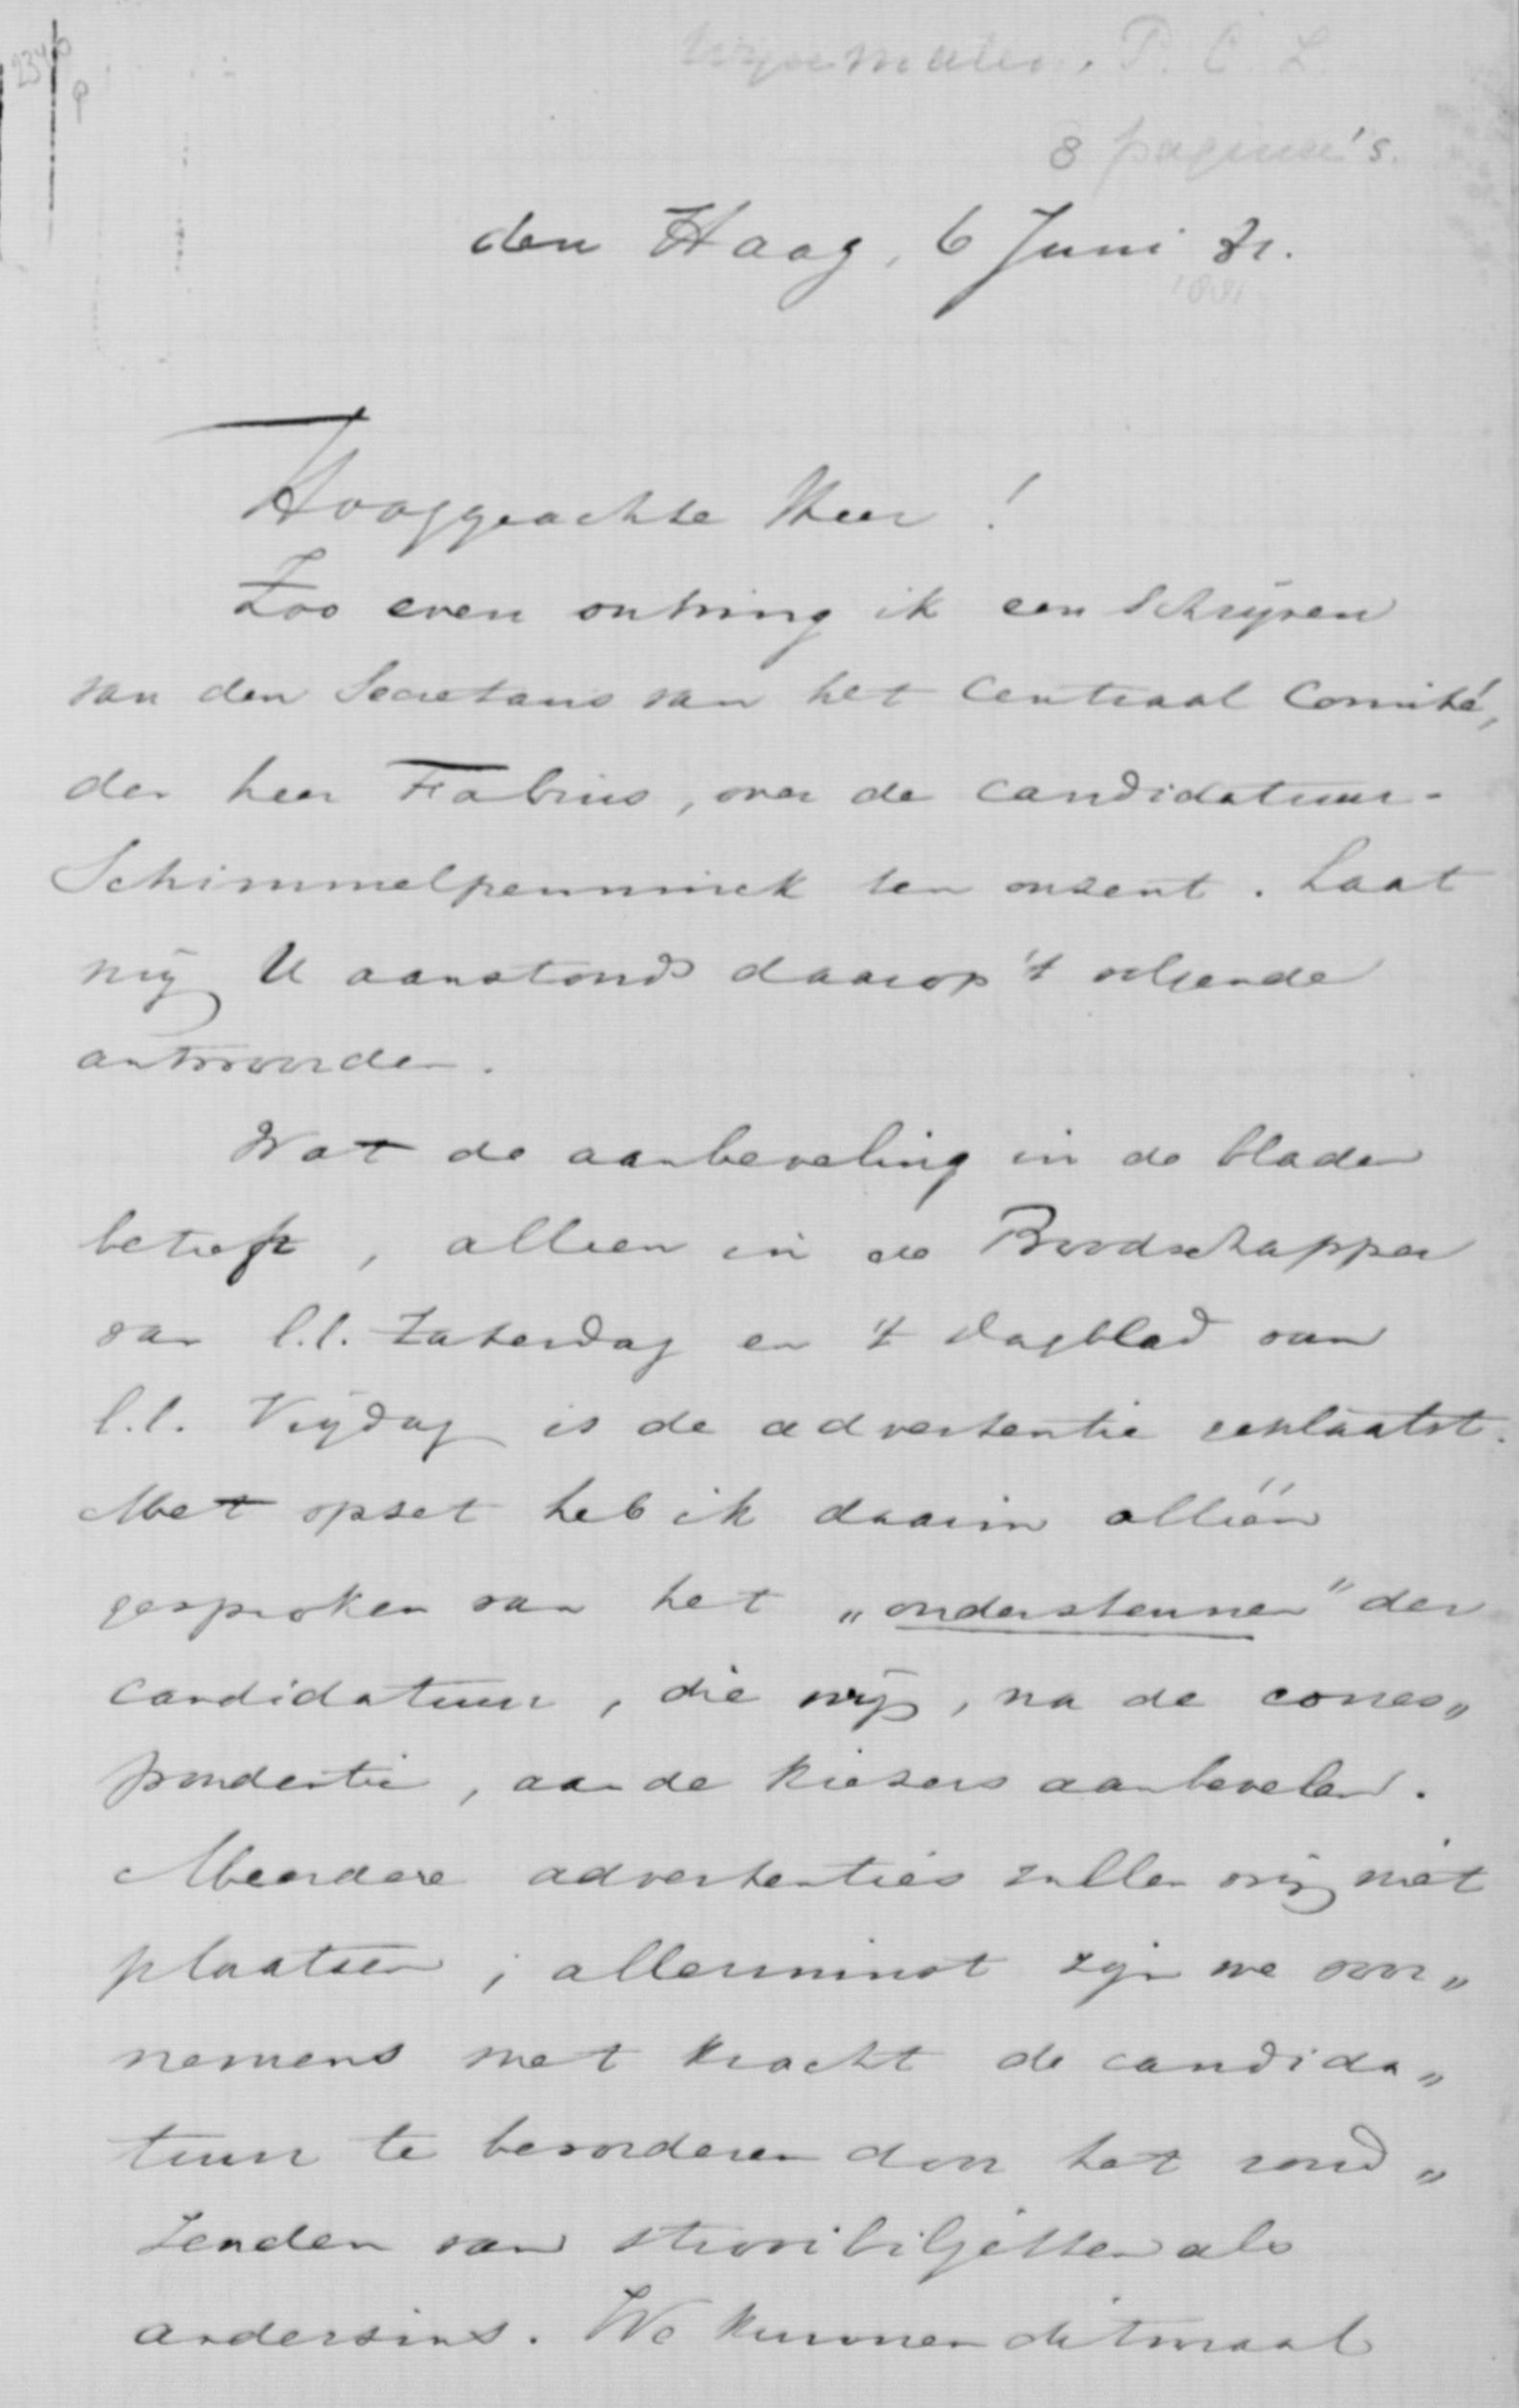 P. C. L.
8 pagina's.
den Haag, 6 Juni 81.
1881
Hooggeachte Heer!
Zoo even ontving ik een schrijven
van den Secretaris van het Centraal Comité,
den heer Fabius, over de candidatuur-
Schimmelpenninck ten onzent. Laat
mij U aanstonds daarop 't volgende
antwoorden.
Wat de aanbeveling in de bladen
betreft, alleen in de Boodschapper
van l.l. Zaterdag en 't Dagblad van
l.l. Vrijdag is de advertentie geplaatst.
Met opzet heb ik daarin alléén
gesproken van het „ondersteunen" der
candidatuur, die wij, na de corres„
pondentie, aan de kiezers aanbevelen.
Meerdere advertentiës zullen wij niet
plaatsen; allerminst zijn we voor„
nemens met kracht de candida„
tuur te bevorderen door het rond„
zenden van strooibiljetten als
anderzins. We kunnen ditmaal